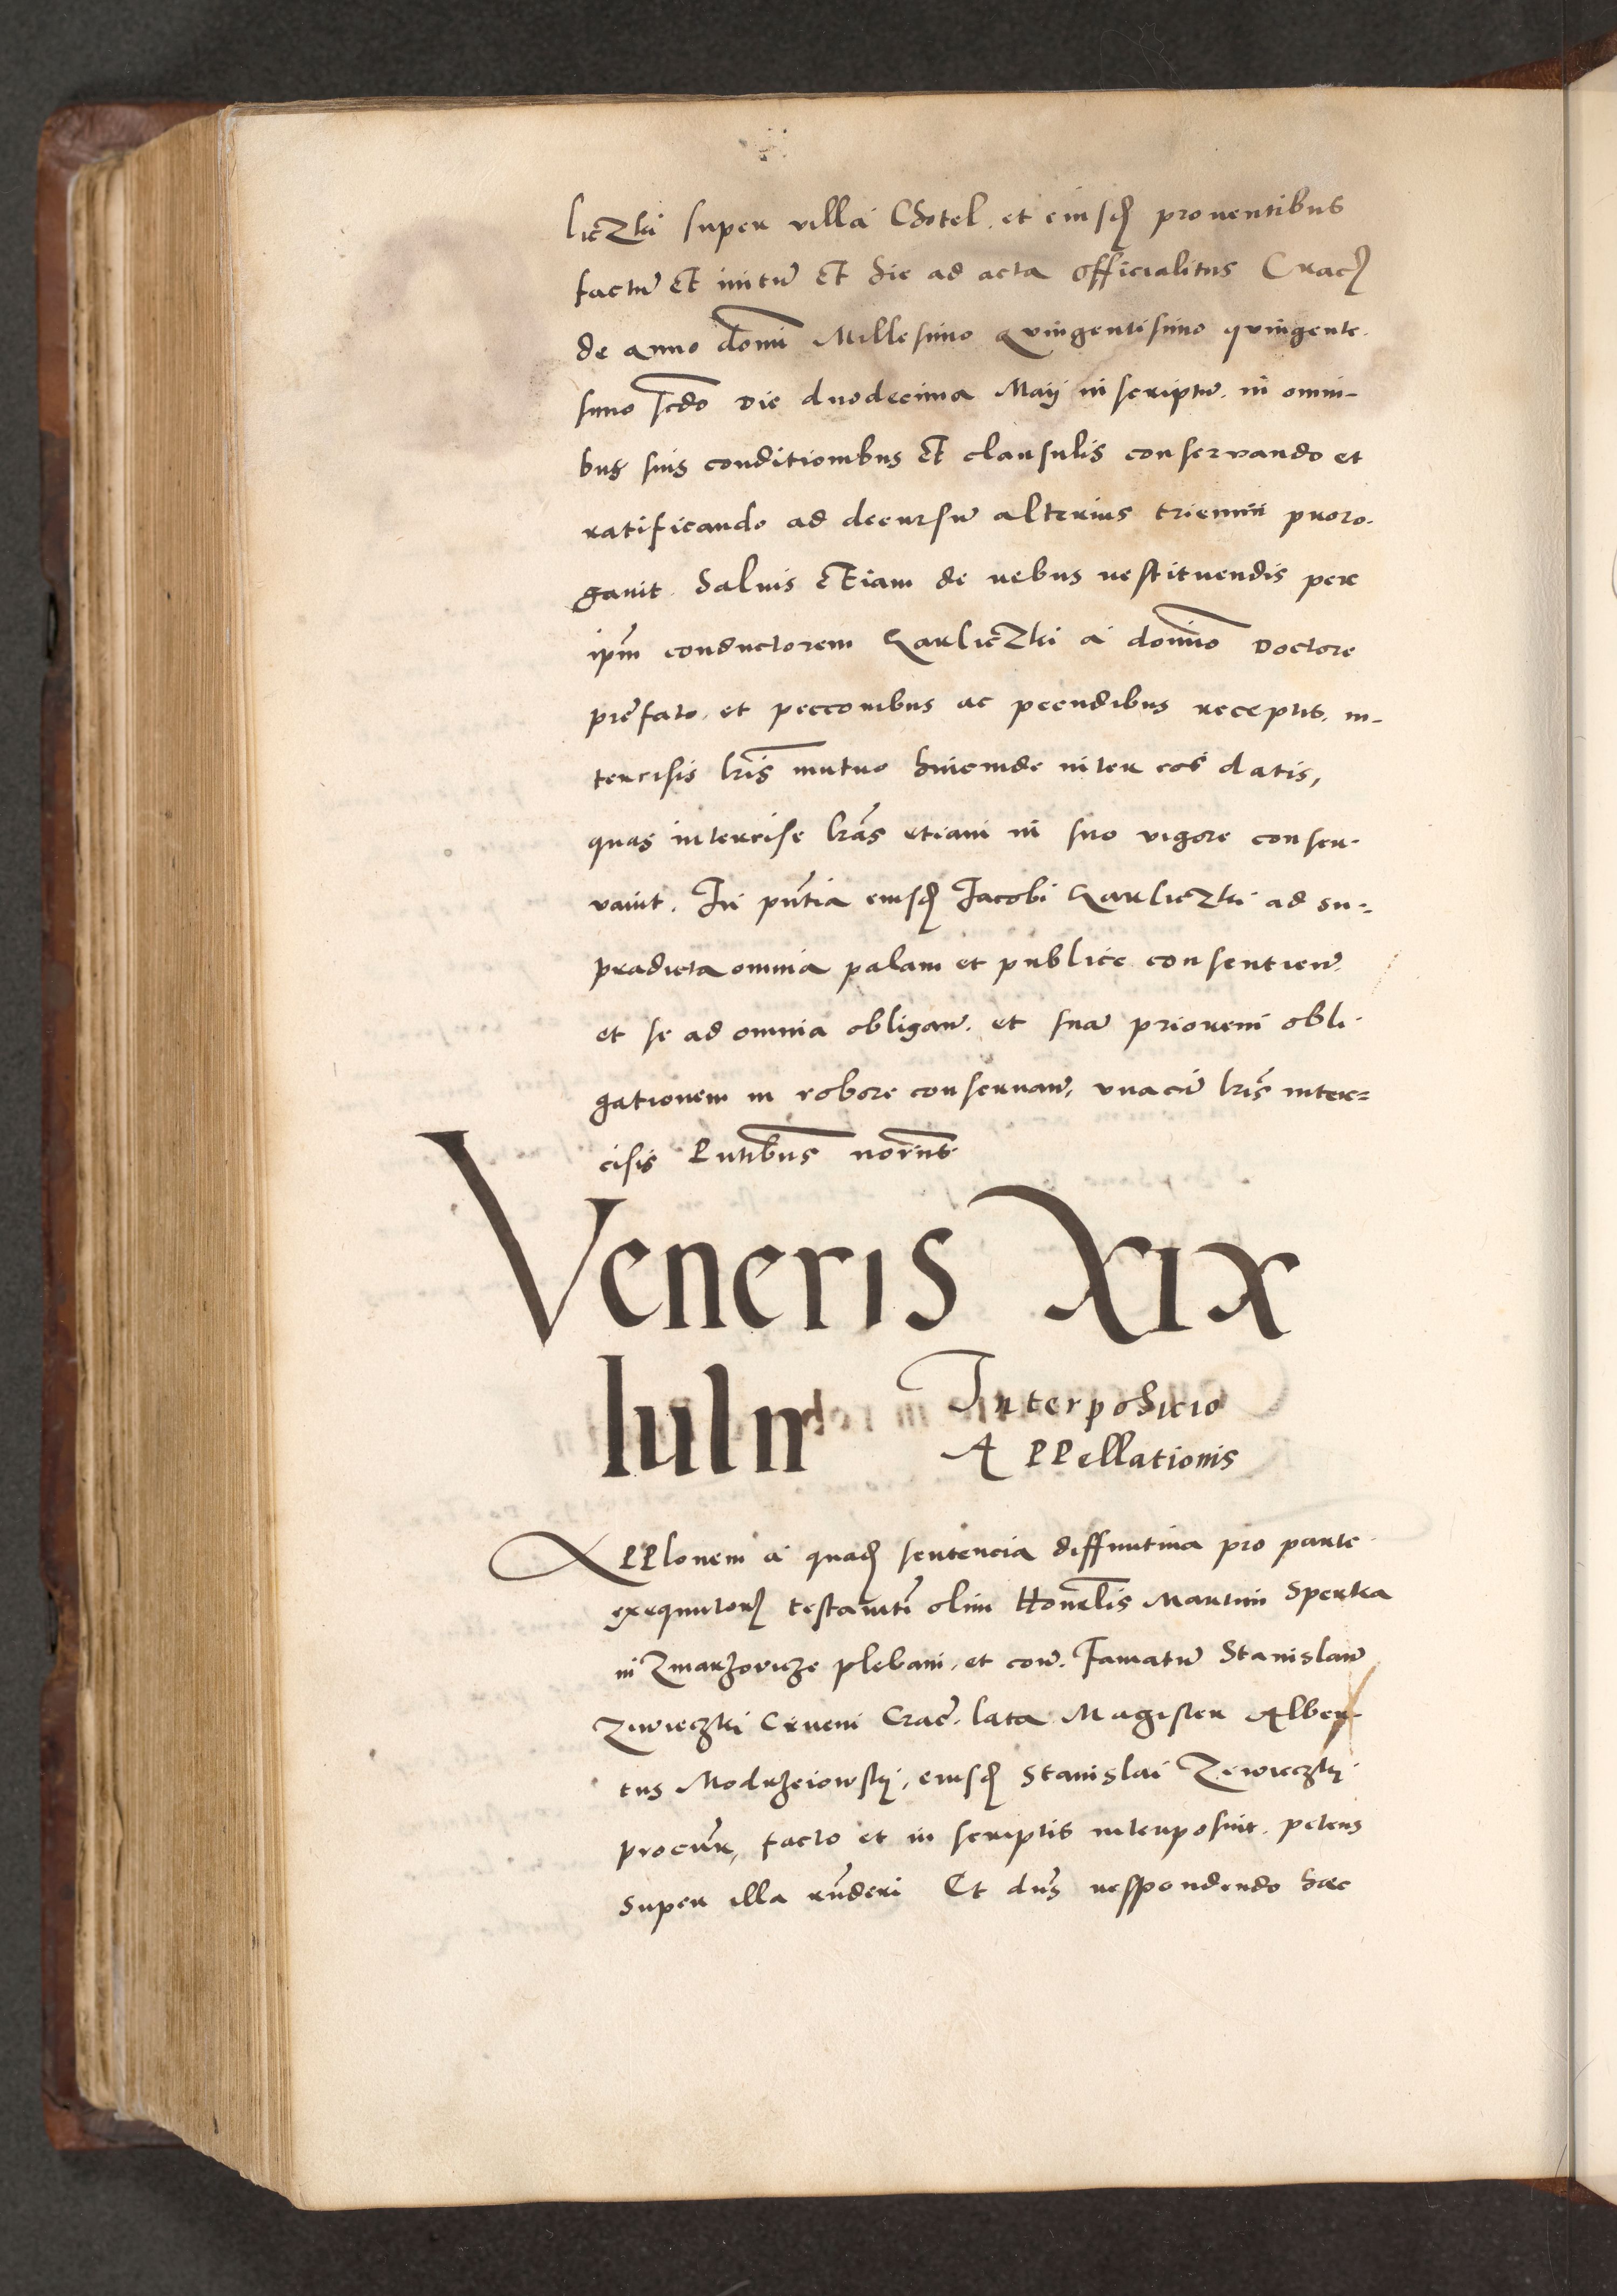 lieZki super villa Chotel. et eiusd proventibus
factu Et initu Et hic ad acta officialitus Crac
de anno domi Millesimo Quingentisimo quingente
simo scdo Die duodecima Maij inscriptu. in omni-
bus suis conditionibus Et clausulis conservando et
ratificando ad decursu alterius triennii proro-
gavit. Salvis Etiam de rebus restituendis per
ipm conductorem KarlieZki a domino Doctore
prefato. et peccoribus ac pecudibus receptis. in-
tercisis lris mutuo hincinde inter eos datis,
quas intercise lras etiam in suo vigore conser-
vavit. In pntia eiusd Jacobi KarlieZki ad su-
pradicta omnia palam et publice consentien.
et se ad omnia obligan. et sua priorem obli-
gationem in robore conservan. una cu lris inter-
cisis Pntibus norijs
Veneris XIX
Iulii Interposicio
APPellationis
APPlonem a quad sentencia diffinitiva pro parte
exequutor testamti olim Honrlis Martini Sperka
in Zmarzovicze plebani. et con. Famatu Stanislau
Ziwieczki Civem Crac. lata Magister Alber-
tus Modrzeiowskj, eiusd Stanislai Ziwieczkj
procur, facto et in scriptis interposuit. petens
super illa rnderi Et dns respondendo hac